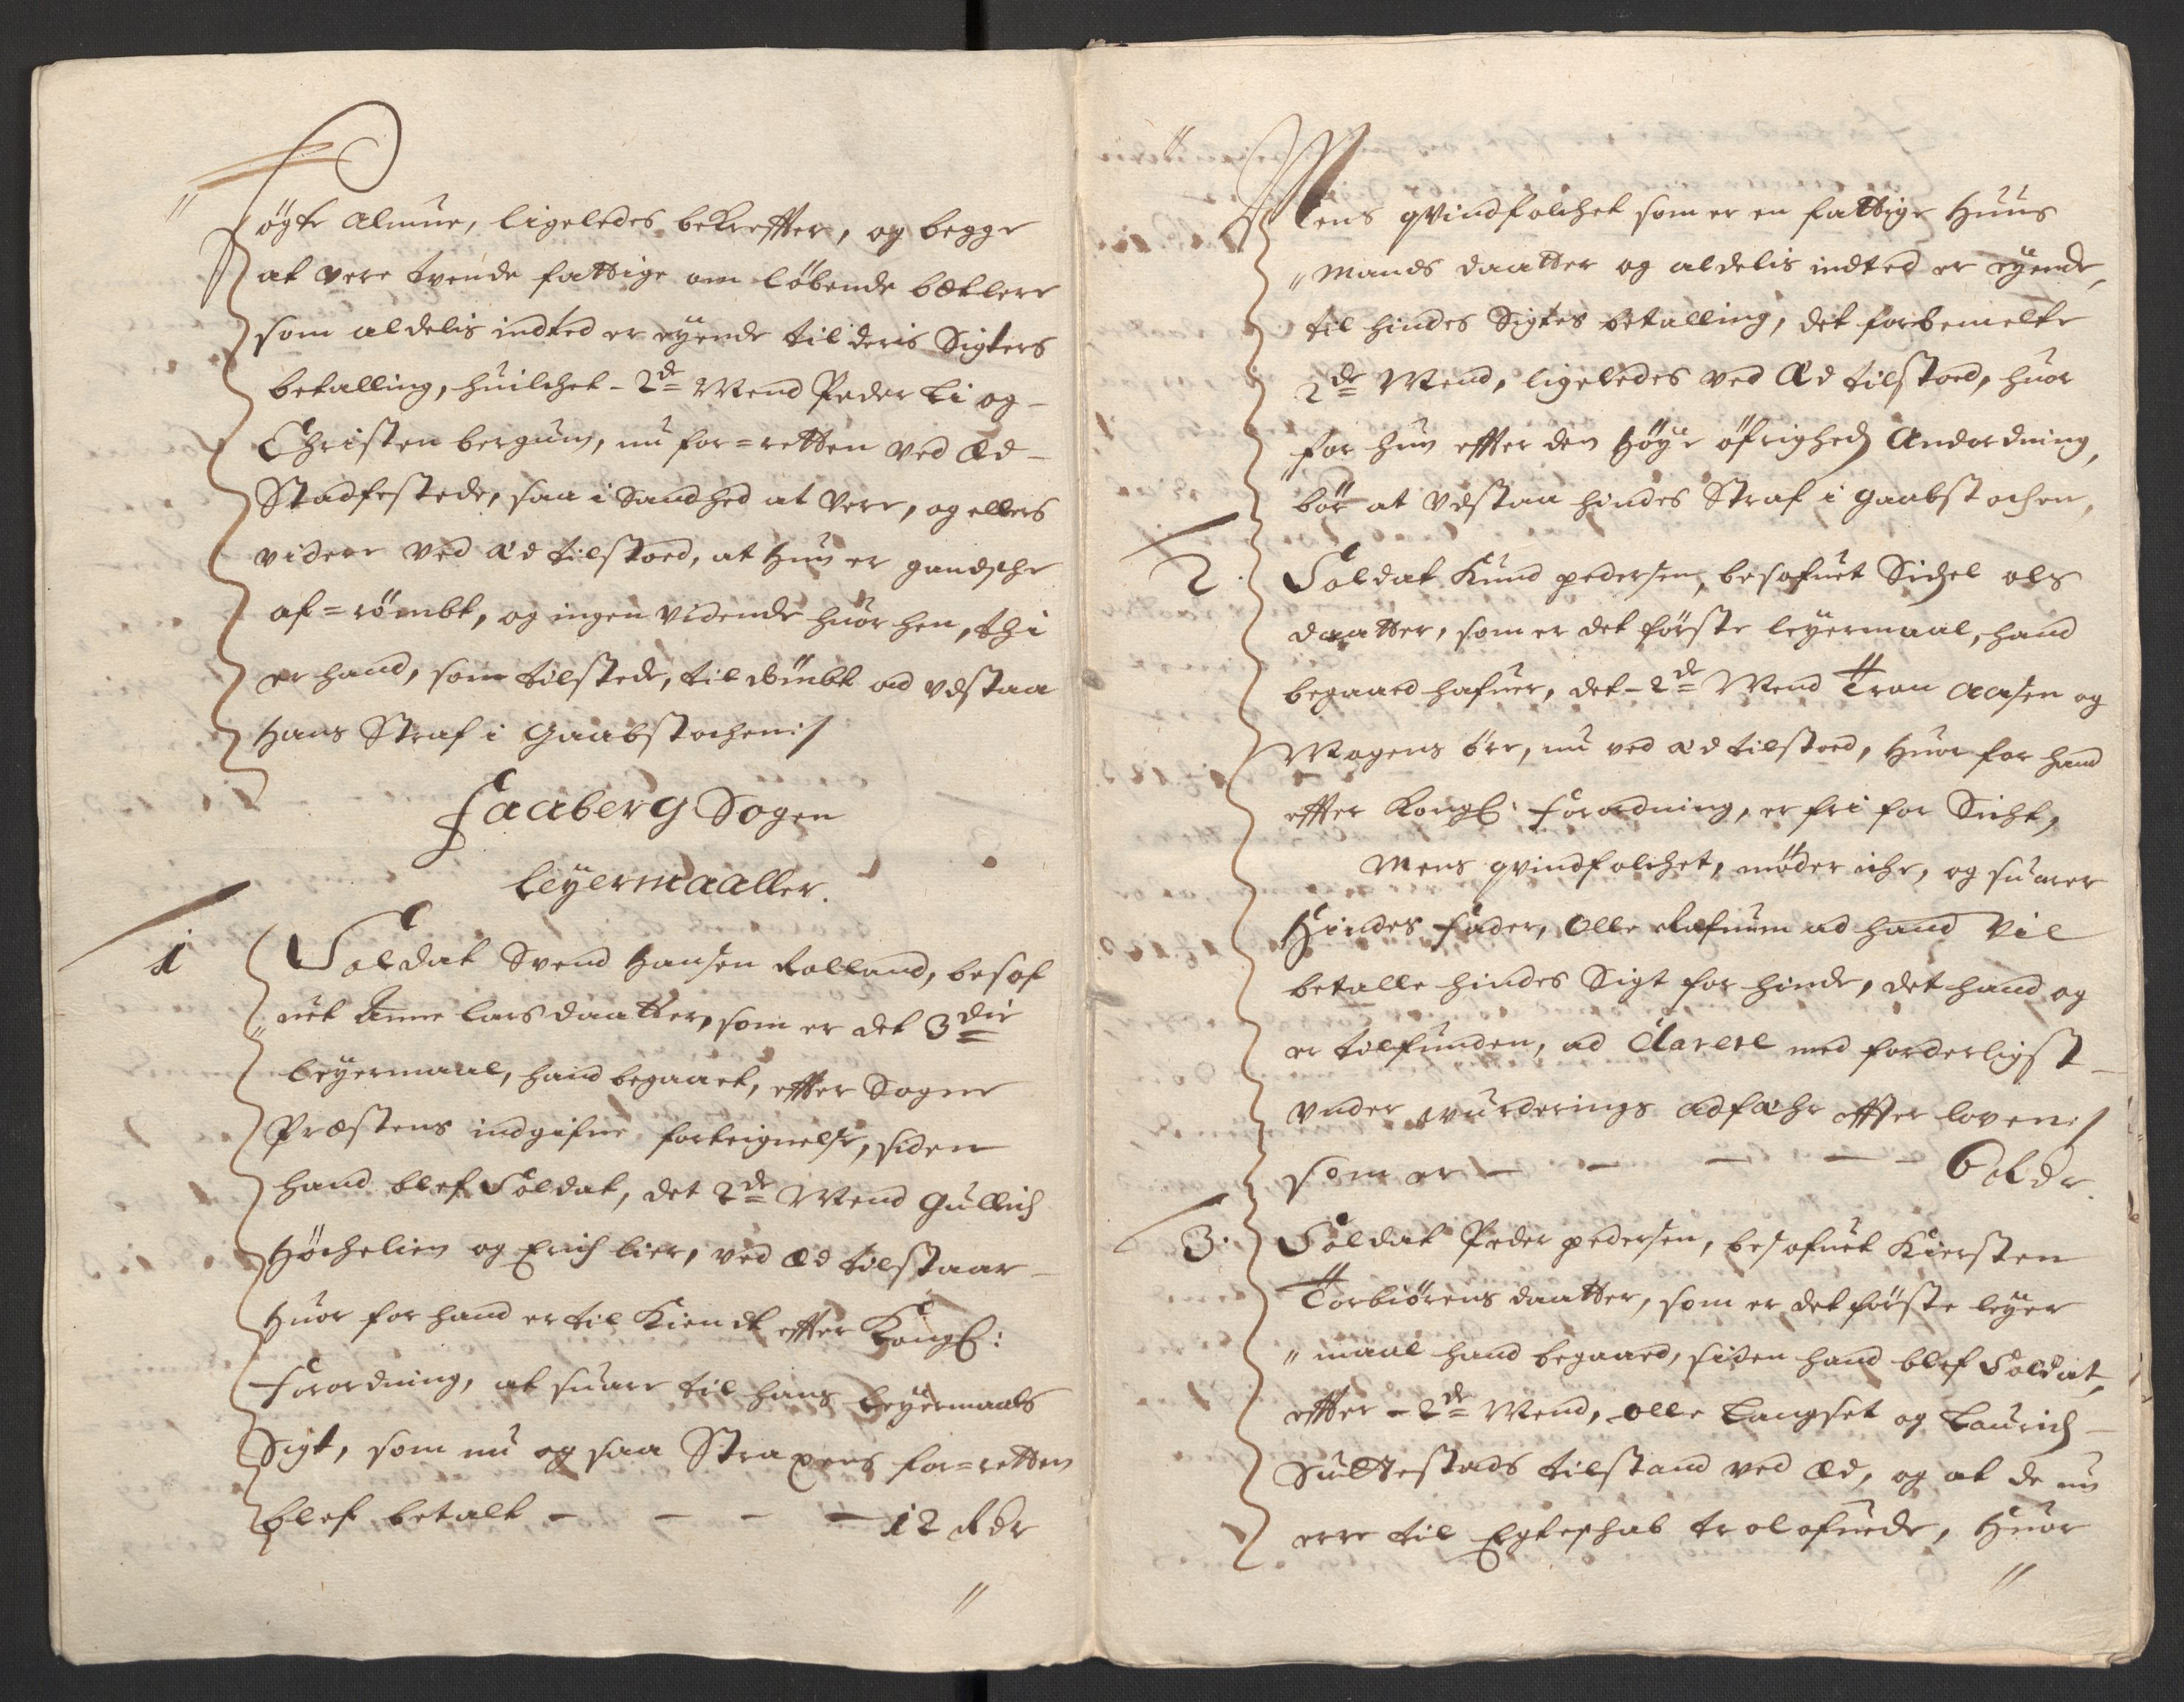 søgte Almue, ligeledes bekreffter, og begge
at vere tvende fattige om løbende bætlere
som aldelis indted er eyende til deris Sigters
betalling, huilchet - 2de Mend Peder Li og -
Christen bergum, nu for=retten ved Æd -
Stadfestede, saa i Sandhed at vere, og ellers
videre ved æd tilstoed, at hun er gandsche
af=rømbt, og ingen vidende huor hen, thi
er hand, som tilstede, til dømbt ad udstaa
hans Straf i Gaabstochen:/
Faaberg Sogen
Leyermaaller.
1 Soldat Svend Hansen Rolland, besof
uet Anne Lars daatter, som er det 3die
Leyermaal, hand begaaet, effter Sogne
Præstens indgifne forteignelse, siden
hand blef Soldat, det 2de Mend Gullich
Høchelien og Erich lier, ved Æd tilstaar -
Huor for hand er til Kiendt effter Kongl:
Forordning, at suare til hans Leyermaals
Sigt, som nu og saa Straxens for=retten
blef betalt - - - - 12 Rdr
"
" Mens qvindfolchet som er en fattige Huus
" Mands daatter og aldelis indted er eyende,
til hindes Sigtes betalling, det forbemelte
2de Mend, ligeledes ved Æd tilstoed, huor
for hun effter den Høye øfrigheds Anordning,
bør at udstaa hindes Straf i gaabstochen,
2. Soldat Knud pedersen, besofuet Sidzel ols
daatter, som er det første leyermaal, hand
begaaed hafuer, det - 2de Mend Tron Aasen og
Mogens øre, nu ved æd tilstoed, huor for hand
effter Kongl: Forordning, er fri for Sicht,
Mens qvindfolchet, møder iche, og suarer
Hindes fader, Olle Rafnum ad hand vil
betalle hindes Sigt for hinde, det hand og
er tilfunden, ad Clarere med forderligst -
under wurderings adfæhr effter loven:/
som er - - - - - 6 Rdr.
3. Soldat Peder pedersen, besofuet Kiersten
Torbiørens daatter, som er det første leyer
" maal hand begaaed, siden hand blef Soldat,
effter - 2de Mend, Olle Langset og Laurich -
Suttestads tilstand ved æd, og at de nu
ere til Egteschab trolofuede, Huor
"